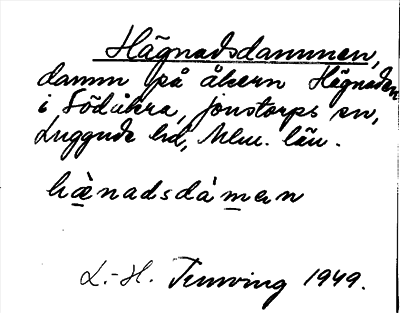 Hägnadsdammen,
damm på åkern Hägnaden
i Södåkra, Jonstorps sn,
Luggude hd, Mlm. län.
hæ̀nadsdàmen
L.-H. 1949.